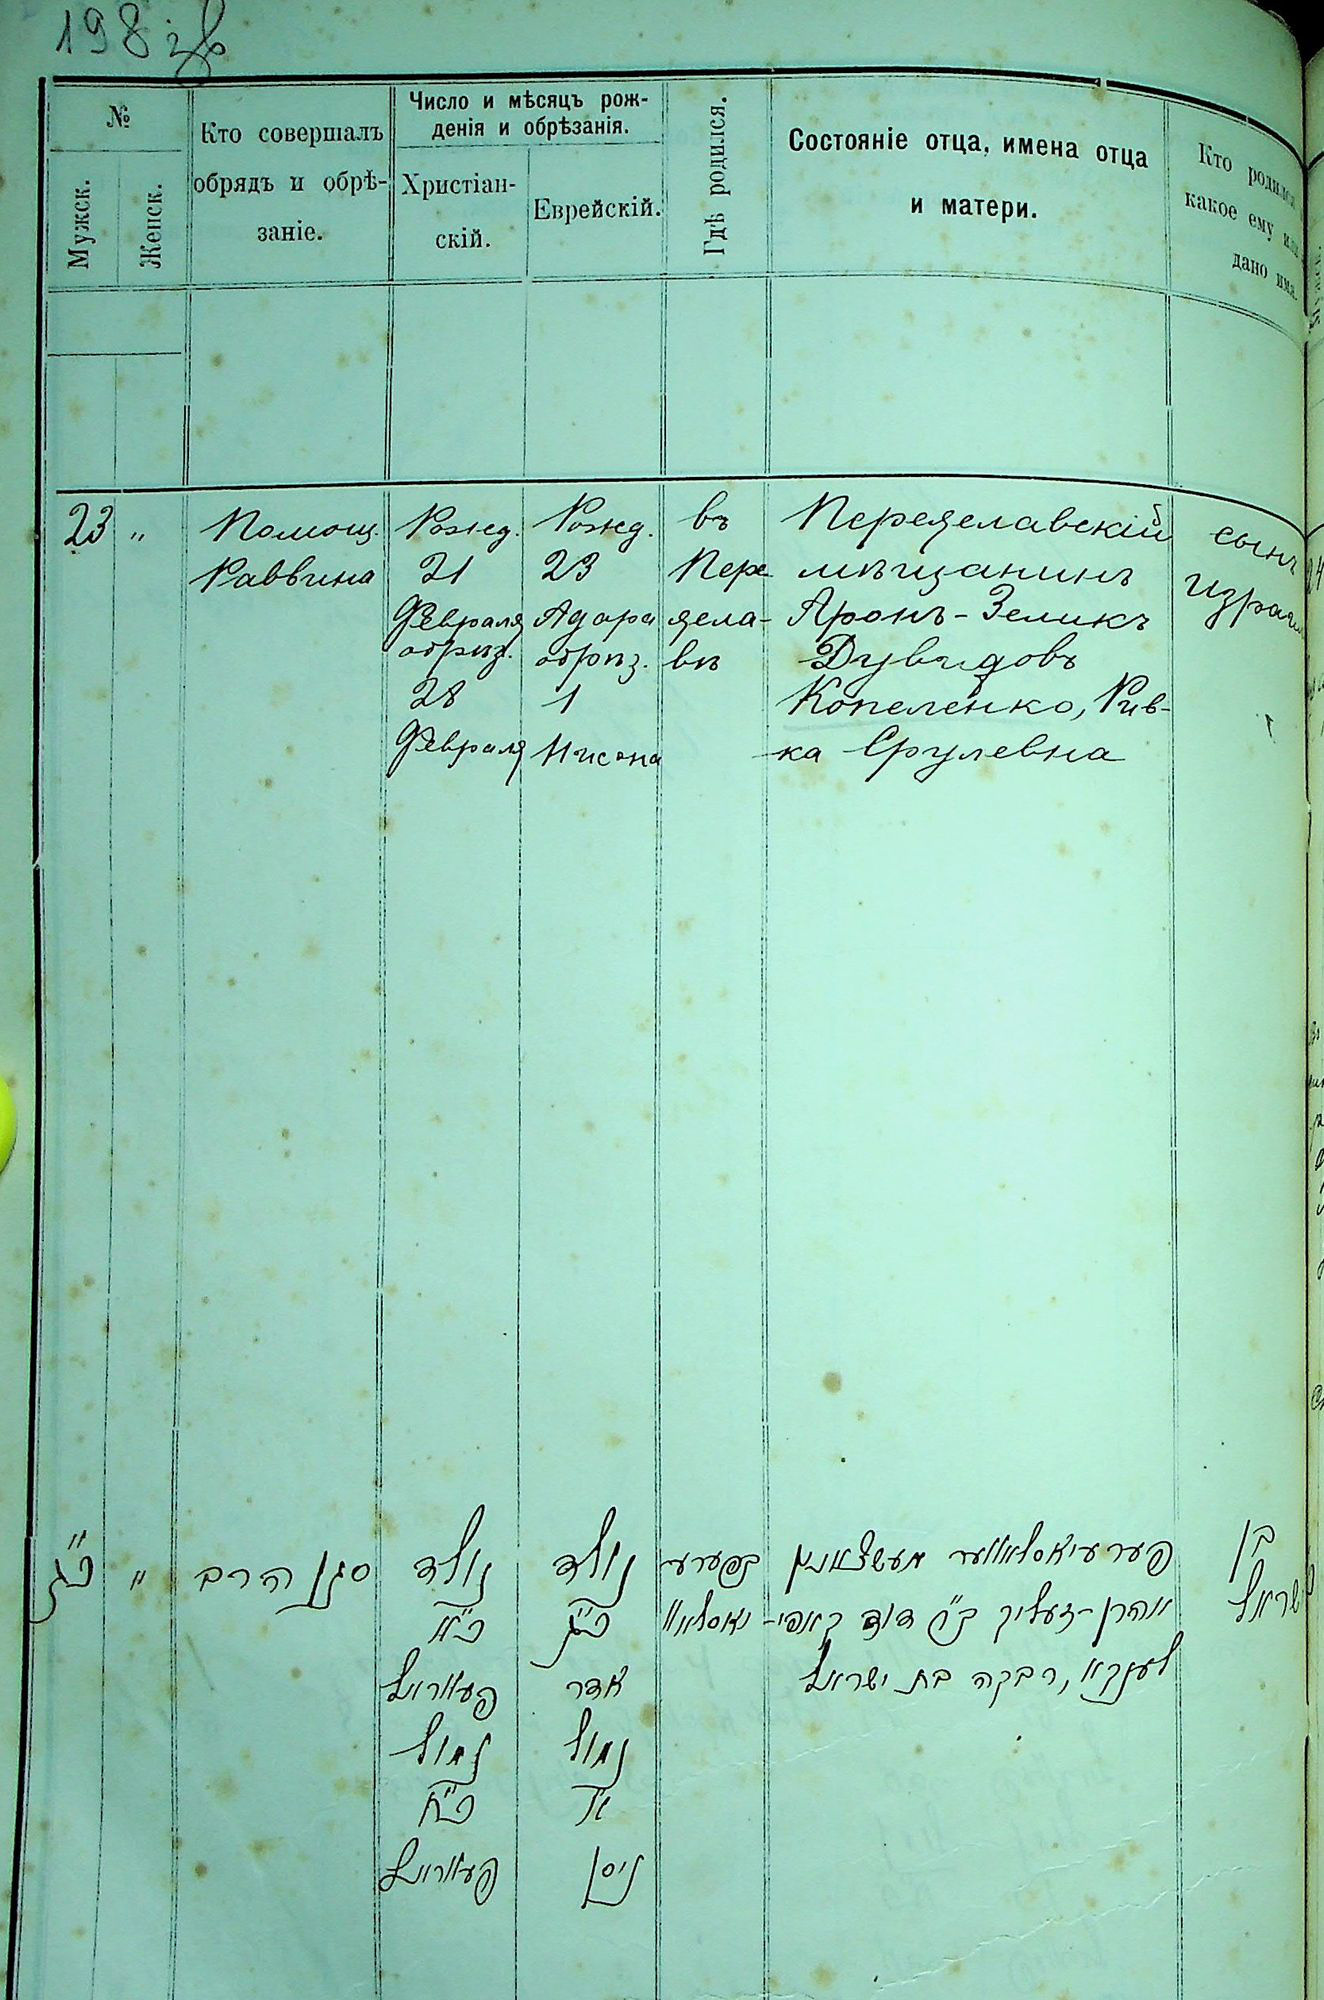 198 зв
№
Мужск.
Женск.
Кто совершалъ
обрядъ и обрѣ-
заніе.
Число и мѣсяцъ рож-
денія и обрѣзанія.
Христіан-
скій.
Еврейскій.
Гдѣ родился.
Состояніе отца, имена отца
и матери.
Кто родился
какое ему или
дано имя.
23
"
Помощ.
Раввина
Рожд.
21
Февраля
обрѣз.
28
Февраля
Рожд.
23
Адара
обрѣз.
1
Нисона
въ
Пере
ясла-
вѣ
Переяславскій
мѣщанинъ
Аронъ-Зеликъ
Дувидовъ
Копеленко, Рив-
ка Срулевна
сынъ
Израиль
כ"ג
"
סגן הרב
נולד
כ"א
פעווראל
נמול
כ"ח
פעווראל
נולד
כ"ג
אדר
נמול
א'
ניסן
בפערע-
יאסלאוו
פערעיאסלאווער מעשצאנין
אהרן-זעליק ב"ר דוד קאפי-
לענקא, רבקה בת ישראל
בן
ישראל